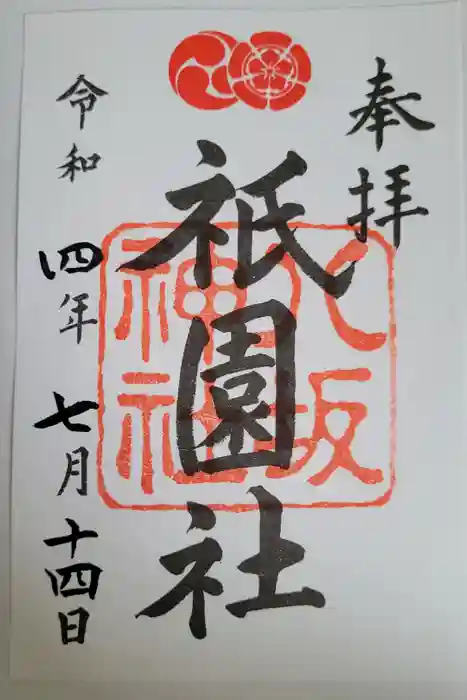 奉拝
祇園社
八坂
神社
令和四年七月十四日